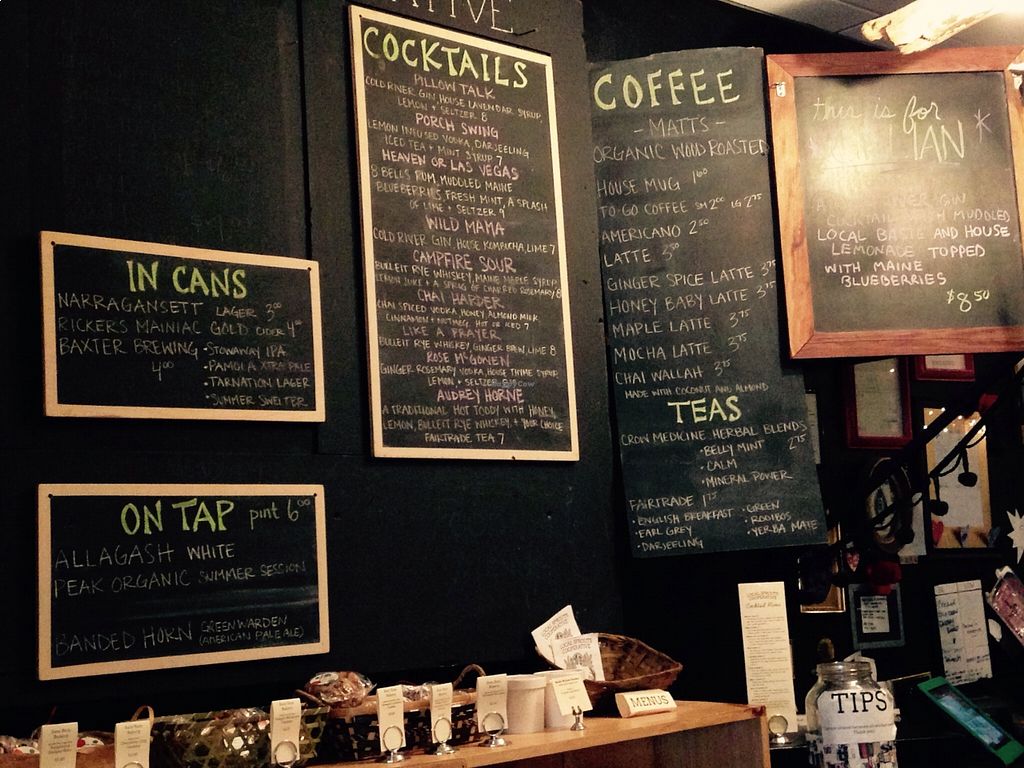 IN CANS
NARRAGANSETT LAGER 3⁰⁰
RICKERS MAINIAC GOLD CIDER 4⁰⁰
BAXTER BREWING • STOWAWAY IPA
4⁰⁰ • PAMOLA XTRA PALE
• TARNATION LAGER
• SUMMER SWELTER
ON TAP pint 6⁰⁰
ALLAGASH WHITE
PEAK ORGANIC SUMMER SESSION
BANDED HORN GREENWARDEN
(AMERICAN PALE ALE)
COCKTAILS
PILLOW TALK
COLD RIVER GIN, HOUSE LAVENDAR SYRUP,
LEMON + SELTZER 8
PORCH SWING
LEMON INFUSED VODKA, DARJEELING
ICED TEA + MINT SYRUP 7
HEAVEN OR LAS VEGAS
8 BELLS RUM, MUDDLED MAINE
BLUEBERRIES, FRESH MINT, A SPLASH
OF LIME + SELTZER 9
WILD MAMA
COLD RIVER GIN, HOUSE KOMPUCHA, LIME 7
CAMPFIRE SOUR
BULLEIT RYE WHISKEY, MAINE MAPLE SYRUP,
LEMON JUICE + A SPRIG OF CHARRED ROSEMARY 8
CHAI HARDER
CHAI SPICED VODKA, HONEY, ALMOND MILK,
CINNAMON + NUTMEG. HOT OR ICED 7
LIKE A PRAYER
BULLEIT RYE WHISKEY, GINGER BREW, LIME 8
ROSE McGOWEN
GINGER ROSEMARY VODKA, HOUSE THYME SYRUP
LEMON + SELTZER 8
AUDREY HORNE
A TRADITIONAL HOT TODDY WITH HONEY,
LEMON, BULLEIT RYE WHISKEY, + YOUR CHOICE
FAIRTRADE TEA 7
COFFEE
- MATTS -
ORGANIC WOOD ROASTED
HOUSE MUG 1⁰⁰
TO-GO COFFEE SM 2⁰⁰ LG 2⁷⁵
AMERICANO 2⁵⁰
LATTE 3⁵⁰
GINGER SPICE LATTE 3⁷⁵
HONEY BABY LATTE 3⁷⁵
MAPLE LATTE 3⁷⁵
MOCHA LATTE 3⁷⁵
CHAI WALLAH 3⁷⁵
MADE WITH COCONUT AND ALMOND
TEAS
CROW MEDICINE HERBAL BLENDS
• BELLY MINT 2⁷⁵
• CALM
• MINERAL POWER
FAIRTRADE 1⁷⁵
• ENGLISH BREAKFAST • GREEN
• EARL GREY • ROOIBOS
• DARJEELING • YERBA MATE
this is for
GIN
COCKTAIL MUDDLED
LOCAL BASIL AND HOUSE
LEMONADE TOPPED
WITH MAINE
BLUEBERRIES
$8⁵⁰
LOCAL SPROUTS
COOPERATIVE
Cocktail Menu
LOCAL SPROUTS
COOPERATIVE
MENUS
TIPS